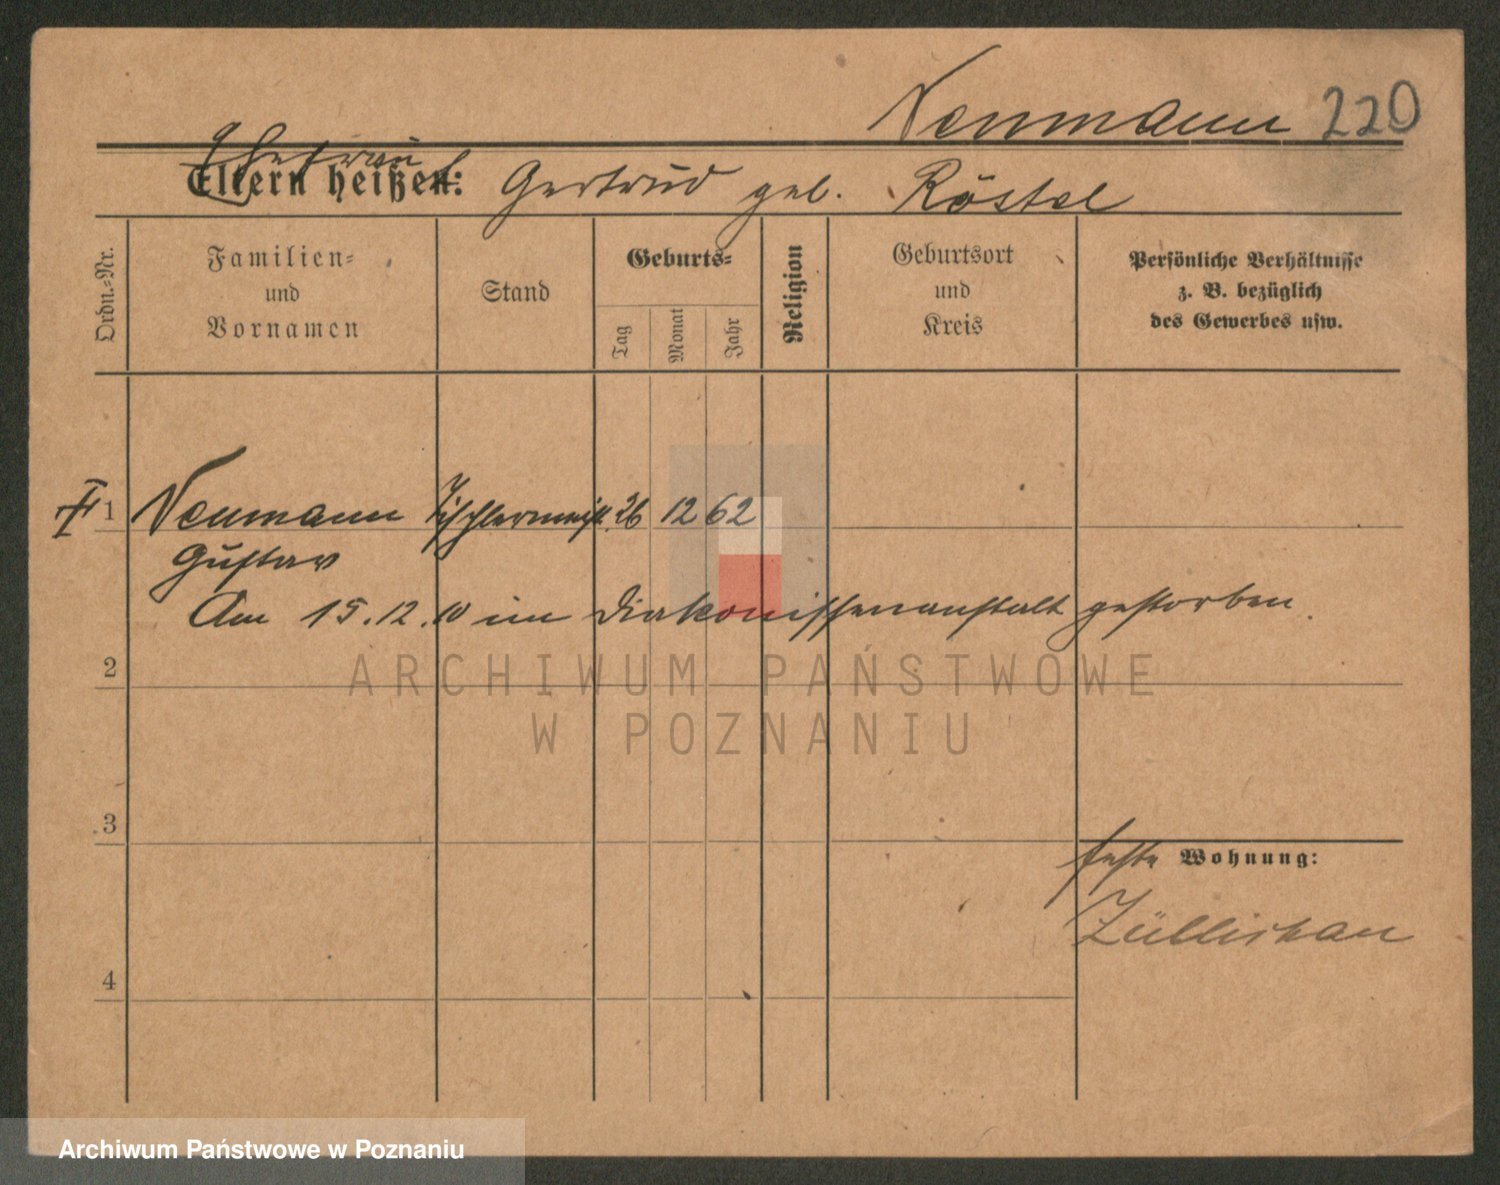 Neumann 220
Ehefrau
Eltern heißen: Gertrud geb. Röstel
Ordn.-Nr.
Familien-
und
Vornamen
Stand
Geburts-
Tag
Monat
Jahr
Religion
Geburtsort
und
Kreis
Persönliche Verhältnisse
z. B. bezüglich
des Gewerbes usw.
1 Neumann Tischlermeist. 26 12 62
Gustav
Am 15.12.10 im Diakonissenanstalt gestorben.
2
ARCHIWUM PAŃSTWOWE
W POZNANIU
3
feste Wohnung:
Züllichau
4
Archiwum Państwowe w Poznaniu